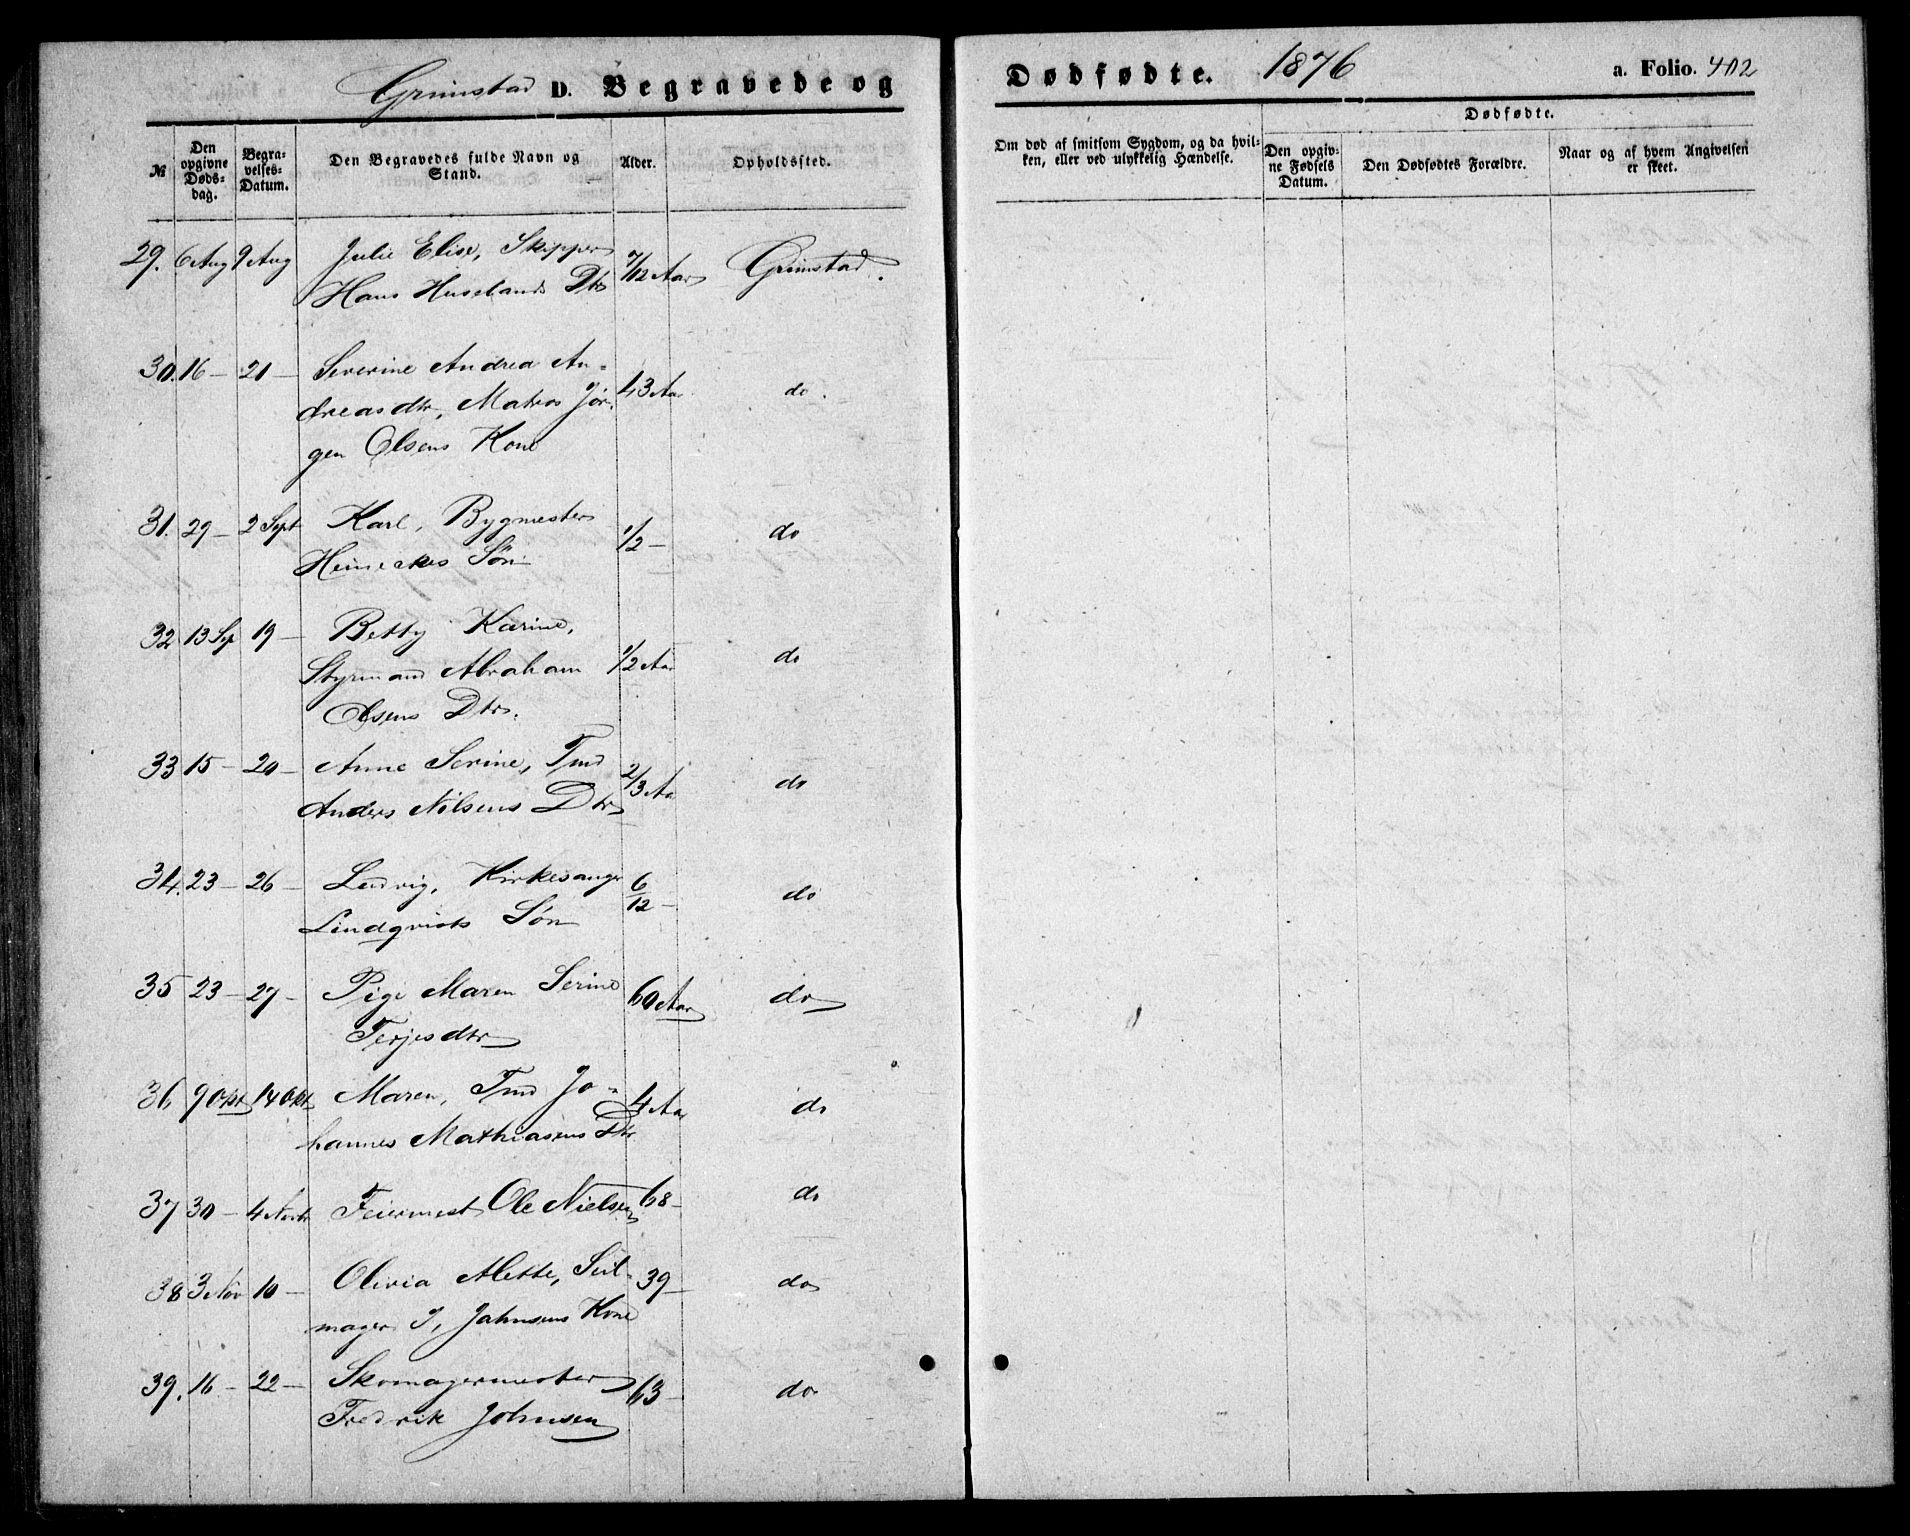 Grimstad D. Begravede og
№
Den opgivne Dødsdag.
Begravelses-Datum.
Den Begravedes fulde Navn og Stand.
Alder.
Opholdssted.
29. 6 Aug 9 Aug Julie Elise, Skipper 7/12 Aar Grimstad.
Hans Huselands Dtr
30. 16 – 21 – Severine Andrea An- 43 Aar do.
dreasdtr, Matros Jør-
gen Olsens Kone
31. 29 – 2 Sept Karl, Bygmester 1/2 – do
Heineckes Søn
32 13 Sep 19 – Betty Karine, 1/2 Aar do
Styrmand Abraham
Olsens Dtr.
33 15 – 20 – Anne Serine, Tmd 2/3 Aa do
Anders Nilsens Dtr
34. 23 – 26 – Ludvig, Kirkesanger 6/12 – do
Lindqvists Søn
35 23 – 27 – Pige Maren Serine 60 Aar do
Terjesdtr
36 9 Okt 14 Okt Maren, Tmd Jo- 4 Aar do
hannes Mathiasens Dtr
37 30 – 4 Novbr Feiermest Ole Nielsen 68 – do
38 3 Nov 10 – Olivia Mette, Seil- 39 – do
mager J. Jahnsens Kone
39. 16 – 22 – Skomagermester 63 – do
Fredrik Johnsen
Dødfødte. 1876 a. Folio. 402
Om død af smitsom Sygdom, og da hvil-
ken, eller ved ulykkelig Hændelse.
Dødfødte.
Den opgiv-
ne Fødsels
Datum.
Den Dødfødtes Forældre.
Naar og af hvem Angivelsen
er skeet.